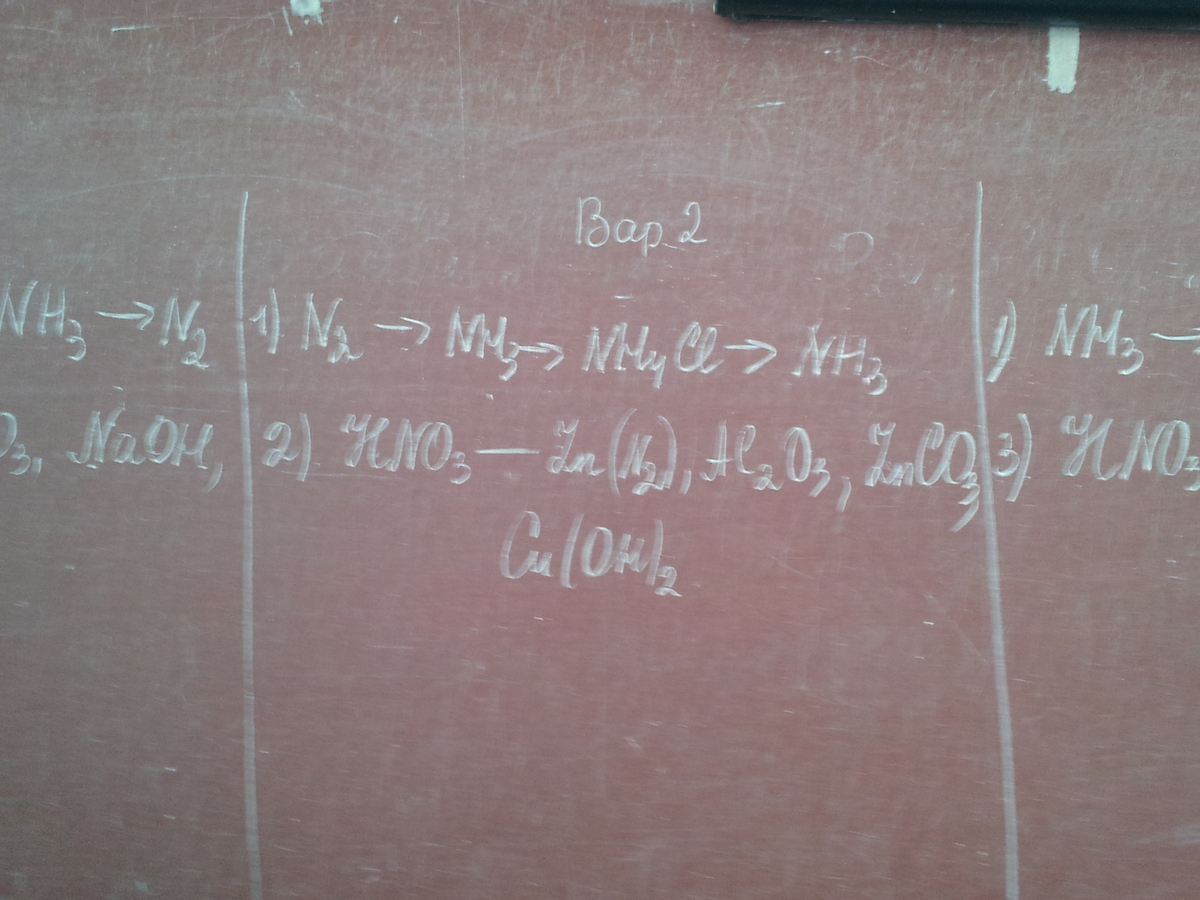 Вар. 2
NH₃ → N₂
O₃, NaOH,
1) N₂ → NH₃ → NH₄Cl → NH₃
2) HNO₃ — Zn(N₂), Al₂O₃, ZnCO₃,
Cu(OH)₂
1) NH₃ →
3) HNO₃